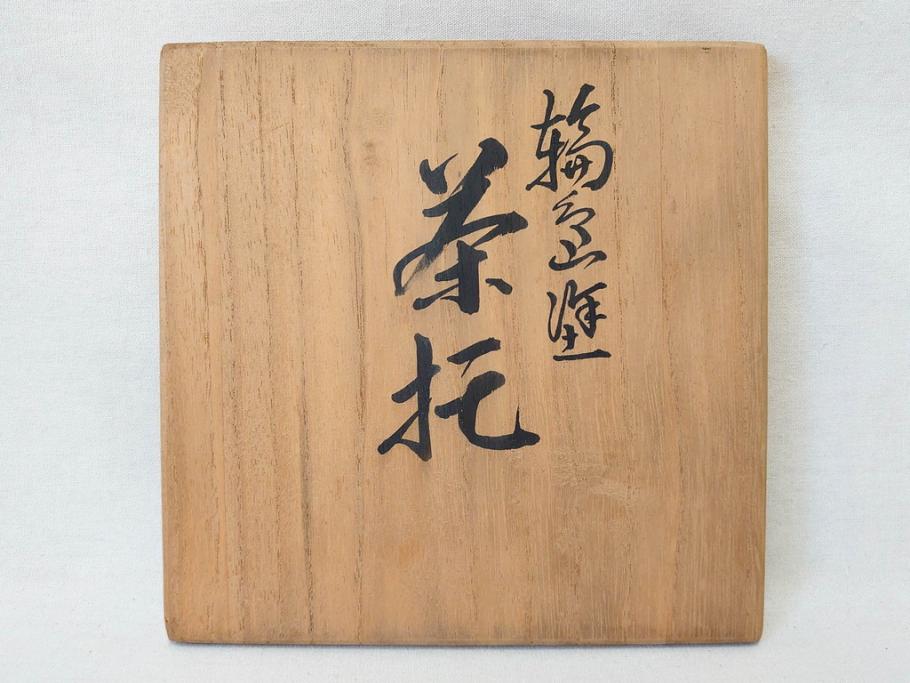 輪島塗
茶托